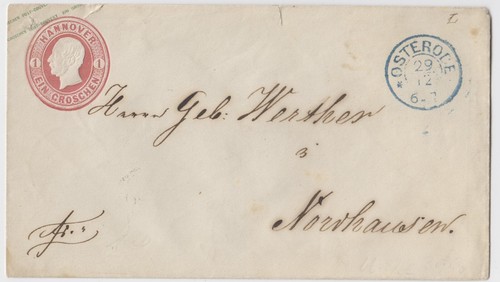 HANNOVER
1 1
EIN GROSCHEN
OSTERODE
29
12
6-7
Herrn Geb: Werther
in
Nordhausen.
fr.